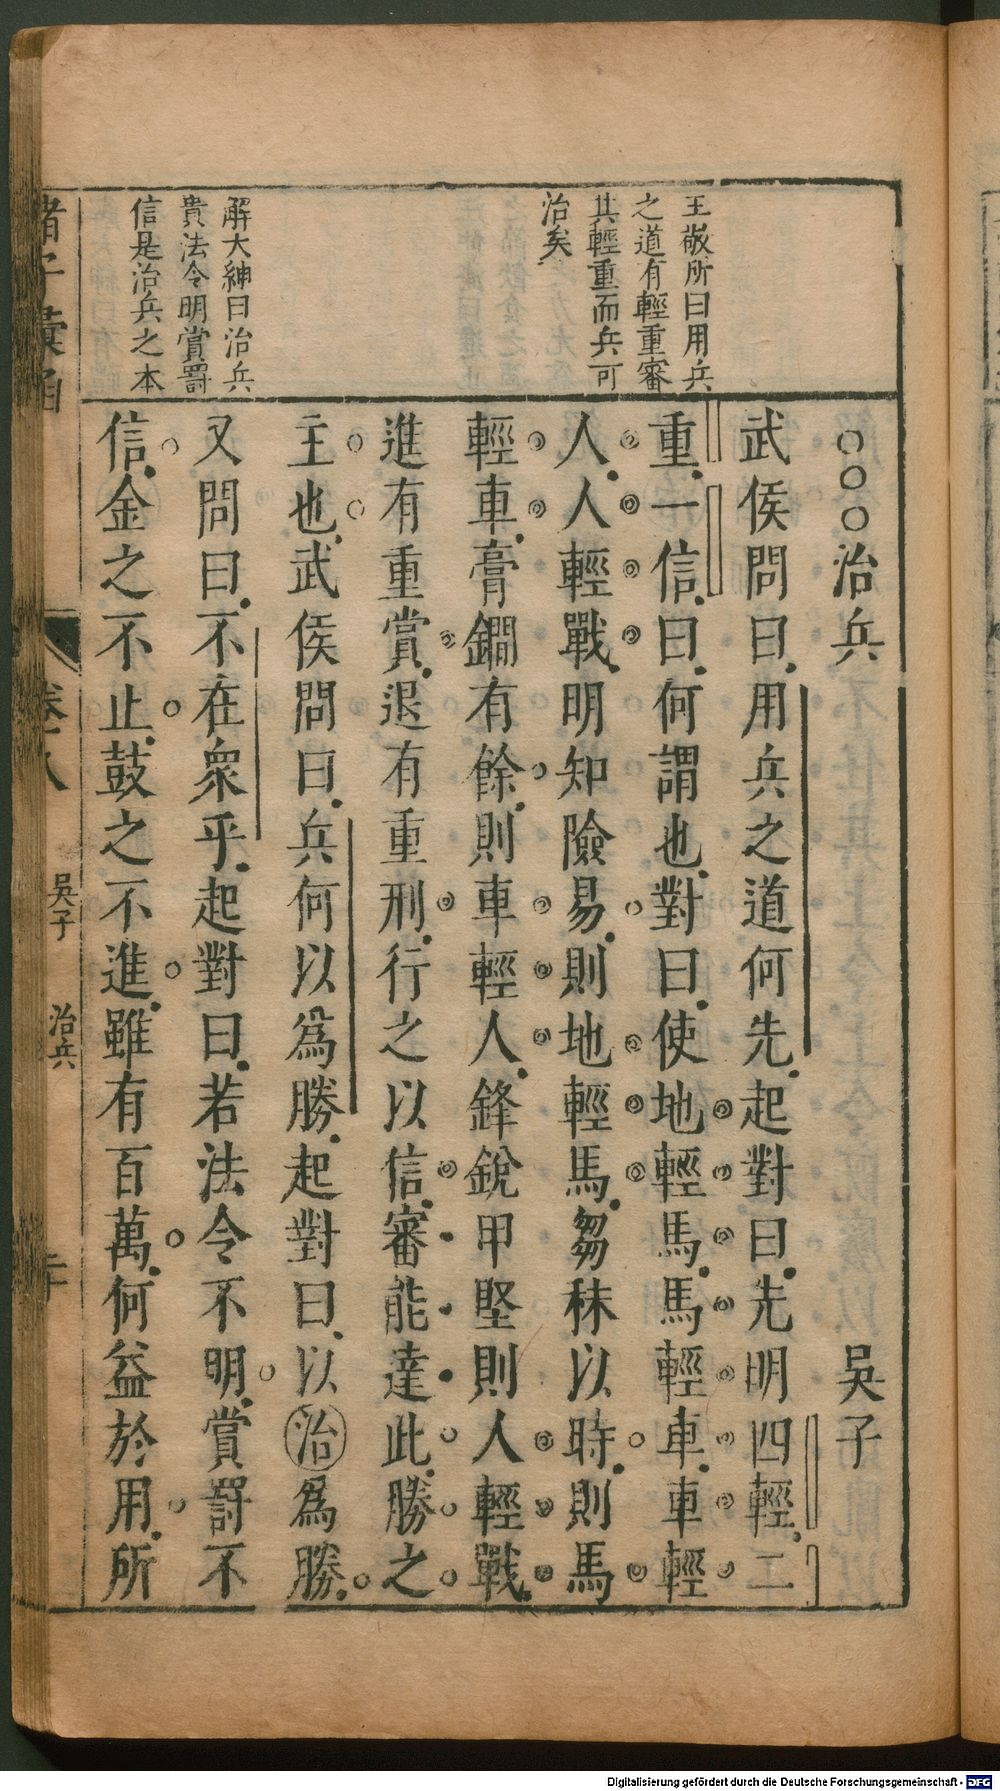 王敬所曰用兵
之道有輕重審
其輕重而兵可
治矣
解大紳曰治兵
貴法令明賞罰
信是治兵之本
○○○治兵 吳子
武侯問曰用兵之道何先起對曰先明四輕二
重一信曰何謂也對曰使地輕馬馬輕車車輕
人人輕戰明知險易則地輕馬芻秣以時則馬
輕車膏鐗有餘則車輕人鋒銳甲堅則人輕戰
進有重賞退有重刑行之以信審能達此勝之
主也武侯問曰兵何以為勝起對曰以治為勝
又問曰不在眾乎起對曰若法令不明賞罰不
信金之不止鼓之不進雖有百萬何益於用所
諸子彙函 卷之八 吳子 治兵
Digitalisierung gefördert durch die Deutsche Forschungsgemeinschaft - DFG